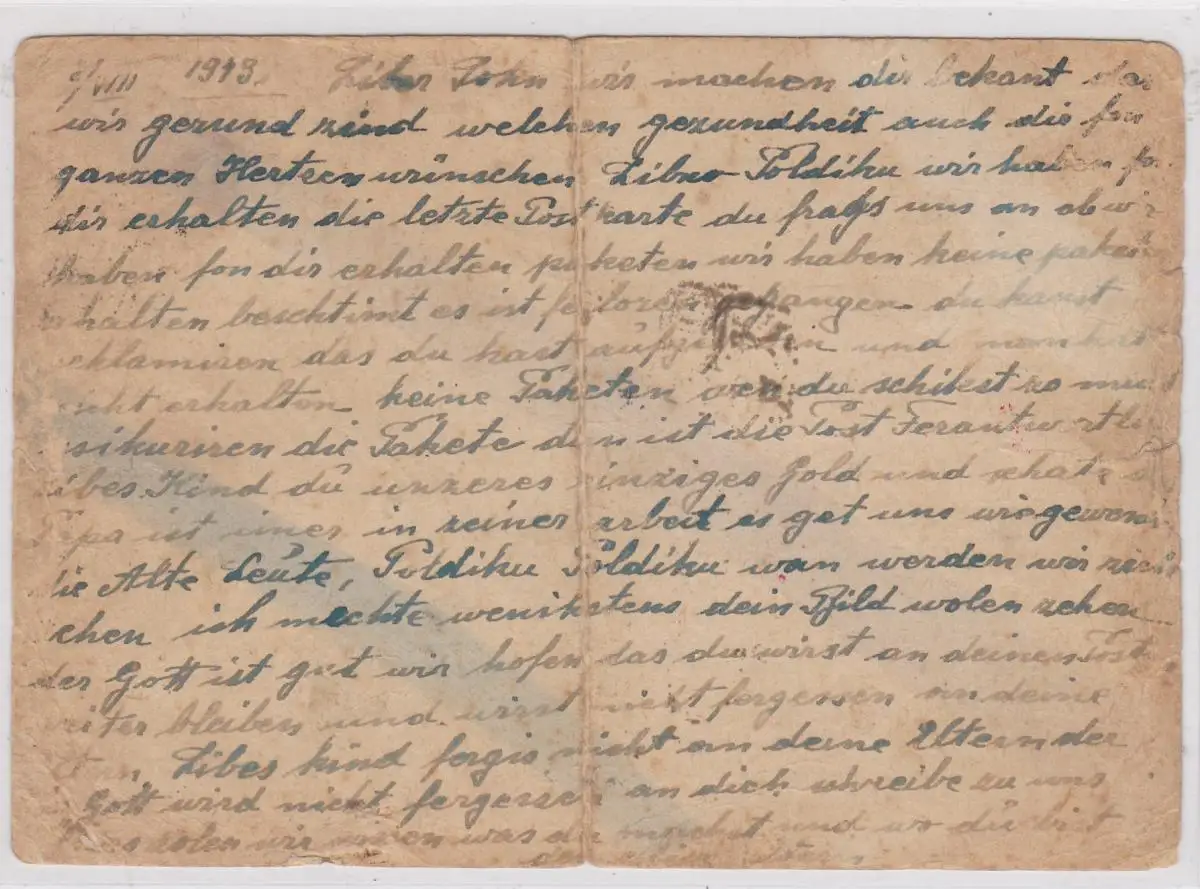 VIII 1943. Liber Sohn wir machen dir bekant
wir gezund zind welchen gezundheit auch dir fon
ganzen Hertzen wünschen Liber Poldiku wir haben
dir erhalten die letzte Postkarte du fragst uns an ob wir
haben fon dir erhalten paketen wir haben keine
erhalten beschtimt es ist gegangen du kanst
reklamiren das du hast und
nicht erhalten keine Paketen wen du schikst zo
asikuriren die Pakete dan ist die Post Ferantwortlich
libes Kind du unzeres einziges Gold und
Papa ist imer in zeiner arbeit es get uns wie
die Alte Leute, Poldiku Poldiku wan werden wir
ich mechte wenikstens dein Bild wolen zehen
der Gott ist gut wir hofen das du wirst an deinen Post
weiter bleiben und wirst nicht fergessen an deine
Libes kind fergis nicht an deine Eltern der
Gott wird nicht fergessen an dich schreibe zu uns
zolen wir was du machst und wo du bist